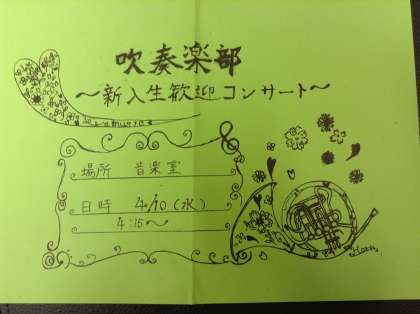 吹奏楽部
～新入生歓迎コンサート～
場所 音楽室
日時 4/10 (水)
4:15～